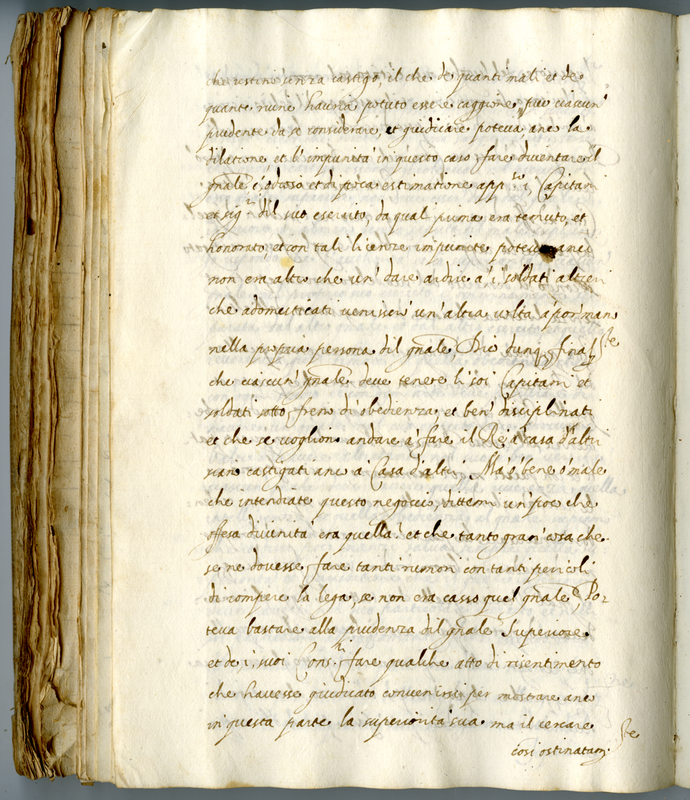 che restino senza castigo, il che de quanti mali et de
quante ruine havria potuto essere caggione, può ciascun'
prudente da se considerare, et giudicare poteva anc la
dilatione et l'impunità in questo caso fare diventare il
gñale, odioso et di poca estimatione app.to i, Capitani
et sig.ri del suo esercito, da qual prima era temuto, et
honorato, et con tali licenze impunite poteva anci
non era altro che un' dare ardire a' i soldati altieri
che adomesticati venissero un'altra volta á por man
nella propria persona dil gñale, Dico dunq. final.te
che ciascun' gñale deve tenere li soi Capitani et
soldati sotto freno di obedienza, et ben' disciplinati
et che se vogliono andare a' fare il Re, a casa d'altri
sian castigati anc a Casa d'altri, Ma ó bene ó male
che intendiate questo negoccio, dittemi un' poco che
offesa divinità era quella? et che tanto gran' cosa che
se ne dovesse fare tanti rumori con tanti pericoli
di rompere la lega, se non era casso quel gñale? Po-
teva bastare alla prudenza dil gñale Superiore
et de i, suoi Cons.ri fare qualche atto di risentimento
che havesse giudicato convenirsi per mostrare anc
in questa parte la superiorità sua ma il cercare
cosi ostinatam.te